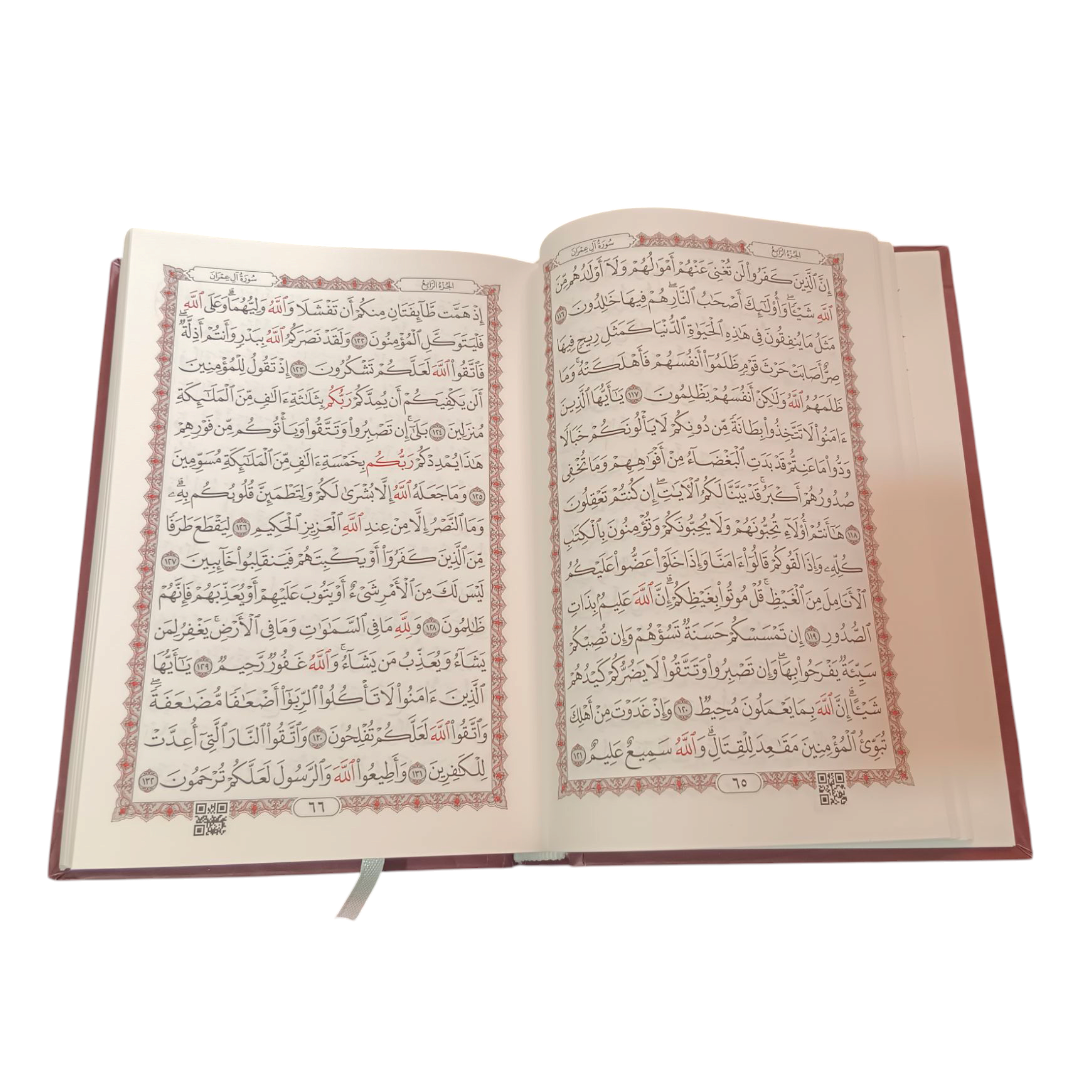 سُورَةُ آلِ عِمْرَانَ
الجُزْءُ الرَّابِعُ
إِنَّ ٱلَّذِينَ كَفَرُوا۟ لَن تُغْنِىَ عَنْهُمْ أَمْوَٰلُهُمْ وَلَآ أَوْلَٰدُهُم مِّنَ
ٱللَّهِ شَيْـًٔا ۖ وَأُو۟لَٰٓئِكَ أَصْحَٰبُ ٱلنَّارِ ۚ هُمْ فِيهَا خَٰلِدُونَ ١١٦
مَثَلُ مَا يُنفِقُونَ فِى هَٰذِهِ ٱلْحَيَوٰةِ ٱلدُّنْيَا كَمَثَلِ رِيحٍ فِيهَا
صِرٌّ أَصَابَتْ حَرْثَ قَوْمٍ ظَلَمُوٓا۟ أَنفُسَهُمْ فَأَهْلَكَتْهُ ۚ وَمَا
ظَلَمَهُمُ ٱللَّهُ وَلَٰكِنْ أَنفُسَهُمْ يَظْلِمُونَ ١١٧ يَٰٓأَيُّهَا ٱلَّذِينَ
ءَامَنُوا۟ لَا تَتَّخِذُوا۟ بِطَانَةً مِّن دُونِكُمْ لَا يَأْلُونَكُمْ خَبَالًا
وَدُّوا۟ مَا عَنِتُّمْ قَدْ بَدَتِ ٱلْبَغْضَآءُ مِنْ أَفْوَٰهِهِمْ وَمَا تُخْفِى
صُدُورُهُمْ أَكْبَرُ ۚ قَدْ بَيَّنَّا لَكُمُ ٱلْـَٔايَٰتِ ۖ إِن كُنتُمْ تَعْقِلُونَ
١١٨ هَٰٓأَنتُمْ أُو۟لَآءِ تُحِبُّونَهُمْ وَلَا يُحِبُّونَكُمْ وَتُؤْمِنُونَ بِٱلْكِتَٰبِ
كُلِّهِۦ وَإِذَا لَقُوكُمْ قَالُوٓا۟ ءَامَنَّا وَإِذَا خَلَوْا۟ عَضُّوا۟ عَلَيْكُمُ
ٱلْأَنَامِلَ مِنَ ٱلْغَيْظِ ۚ قُلْ مُوتُوا۟ بِغَيْظِكُمْ ۗ إِنَّ ٱللَّهَ عَلِيمٌۢ بِذَاتِ
ٱلصُّدُورِ ١١٩ إِن تَمْسَسْكُمْ حَسَنَةٌ تَسُؤْهُمْ وَإِن تُصِبْكُمْ
سَيِّئَةٌ يَفْرَحُوا۟ بِهَا ۖ وَإِن تَصْبِرُوا۟ وَتَتَّقُوا۟ لَا يَضُرُّكُمْ كَيْدُهُمْ
شَيْـًٔا ۗ إِنَّ ٱللَّهَ بِمَا يَعْمَلُونَ مُحِيطٌ ١٢٠ وَإِذْ غَدَوْتَ مِنْ أَهْلِكَ
تُبَوِّئُ ٱلْمُؤْمِنِينَ مَقَٰعِدَ لِلْقِتَالِ ۗ وَٱللَّهُ سَمِيعٌ عَلِيمٌ ١٢١
٦٥
سُورَةُ آلِ عِمْرَانَ
الجُزْءُ الرَّابِعُ
إِذْ هَمَّت طَّآئِفَتَانِ مِنكُمْ أَن تَفْشَلَا وَٱللَّهُ وَلِيُّهُمَا ۗ وَعَلَى ٱللَّهِ
فَلْيَتَوَكَّلِ ٱلْمُؤْمِنُونَ ١٢٢ وَلَقَدْ نَصَرَكُمُ ٱللَّهُ بِبَدْرٍ وَأَنتُمْ أَذِلَّةٌ ۖ
فَٱتَّقُوا۟ ٱللَّهَ لَعَلَّكُمْ تَشْكُرُونَ ١٢٣ إِذْ تَقُولُ لِلْمُؤْمِنِينَ
أَلَن يَكْفِيَكُمْ أَن يُمِدَّكُمْ رَبُّكُم بِثَلَٰثَةِ ءَالَٰفٍ مِّنَ ٱلْمَلَٰٓئِكَةِ
مُنزَلِينَ ١٢٤ بَلَىٰٓ ۚ إِن تَصْبِرُوا۟ وَتَتَّقُوا۟ وَيَأْتُوكُم مِّن فَوْرِهِمْ
هَٰذَا يُمْدِدْكُمْ رَبُّكُم بِخَمْسَةِ ءَالَٰفٍ مِّنَ ٱلْمَلَٰٓئِكَةِ مُسَوِّمِينَ
١٢٥ وَمَا جَعَلَهُ ٱللَّهُ إِلَّا بُشْرَىٰ لَكُمْ وَلِتَطْمَئِنَّ قُلُوبُكُم بِهِۦ ۗ
وَمَا ٱلنَّصْرُ إِلَّا مِنْ عِندِ ٱللَّهِ ٱلْعَزِيزِ ٱلْحَكِيمِ ١٢٦ لِيَقْطَعَ طَرَفًا
مِّنَ ٱلَّذِينَ كَفَرُوٓا۟ أَوْ يَكْبِتَهُمْ فَيَنقَلِبُوا۟ خَآئِبِينَ ١٢٧
لَيْسَ لَكَ مِنَ ٱلْأَمْرِ شَىْءٌ أَوْ يَتُوبَ عَلَيْهِمْ أَوْ يُعَذِّبَهُمْ فَإِنَّهُمْ
ظَٰلِمُونَ ١٢٨ وَلِلَّهِ مَا فِى ٱلسَّمَٰوَٰتِ وَمَا فِى ٱلْأَرْضِ ۚ يَغْفِرُ لِمَن
يَشَآءُ وَيُعَذِّبُ مَن يَشَآءُ ۚ وَٱللَّهُ غَفُورٌ رَّحِيمٌ ١٢٩ يَٰٓأَيُّهَا
ٱلَّذِينَ ءَامَنُوا۟ لَا تَأْكُلُوا۟ ٱلرِّبَوٰٓا۟ أَضْعَٰفًا مُّضَٰعَفَةً ۖ
وَٱتَّقُوا۟ ٱللَّهَ لَعَلَّكُمْ تُفْلِحُونَ ١٣٠ وَٱتَّقُوا۟ ٱلنَّارَ ٱلَّتِىٓ أُعِدَّتْ
لِلْكَٰفِرِينَ ١٣١ وَأَطِيعُوا۟ ٱللَّهَ وَٱلرَّسُولَ لَعَلَّكُمْ تُرْحَمُونَ ١٣٢
٦٦